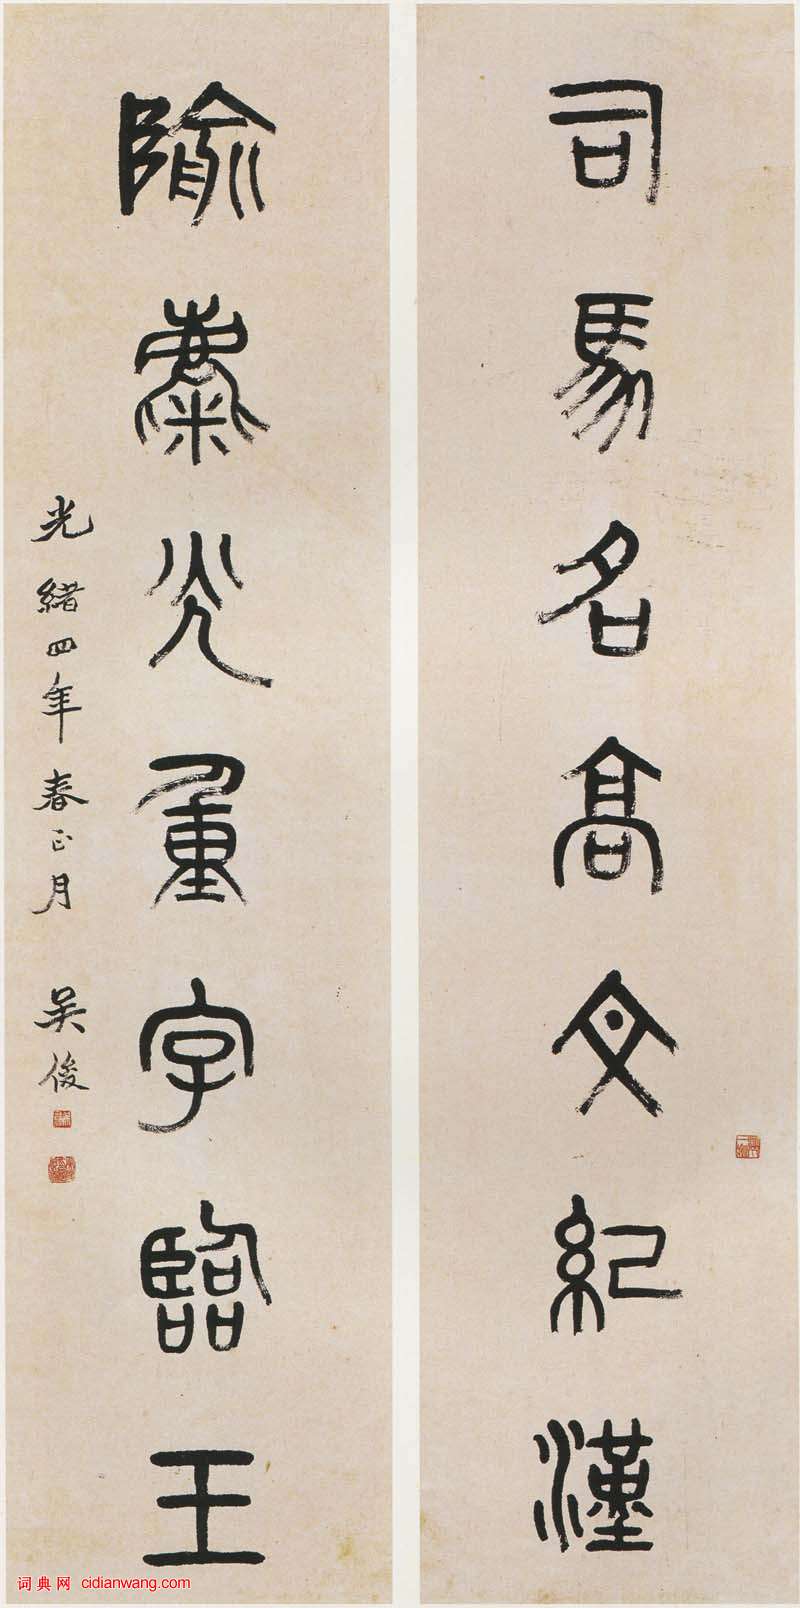 司馬名高文紀漢
隃麋光重字臨王
光緒四年春正月 吳俊
词典网 cidianwang.com